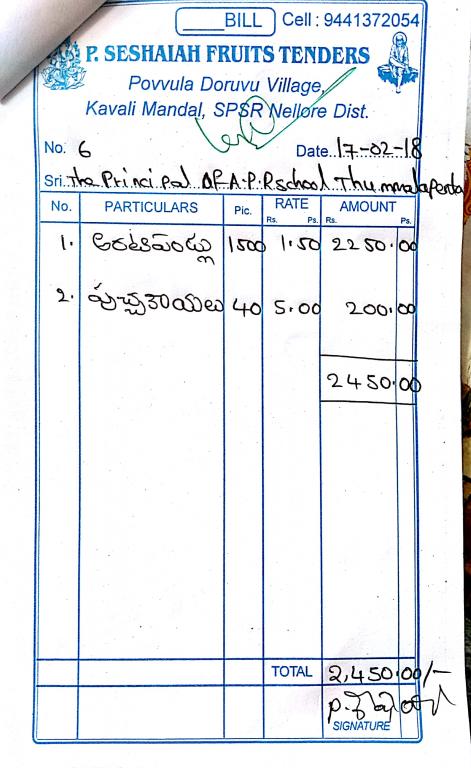 BILL Cell : 9441372054
P. SESHAIAH FRUITS TENDERS
Povvula Doruvu Village,
Kavali Mandal, SPSR Nellore Dist.
No. 6 Date 17-02-18
Sri. The Principal Of A.P.R school Thummalapenta
No. PARTICULARS Pic. RATE AMOUNT
Rs. Ps. Rs. Ps.
1. అరటిపండ్లు 1500 1.50 2250.00
2. పుచ్చకాయలు 40 5.00 200.00
2450.00
TOTAL 2,450.00/-
SIGNATURE